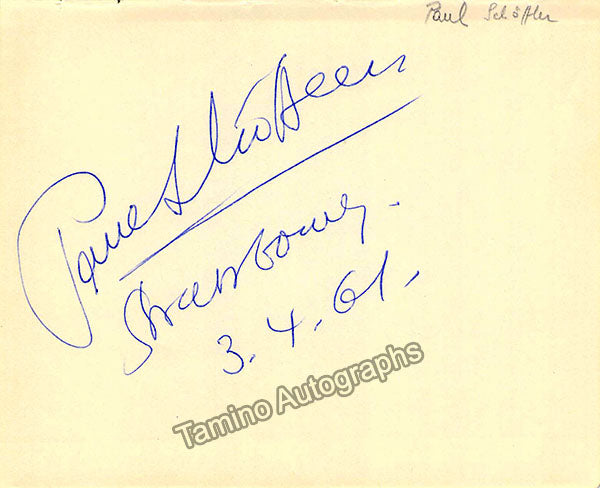 Paul Schöffler
Paul Schöffler
Strassbourg.
3.4.61.
Tamino Autographs